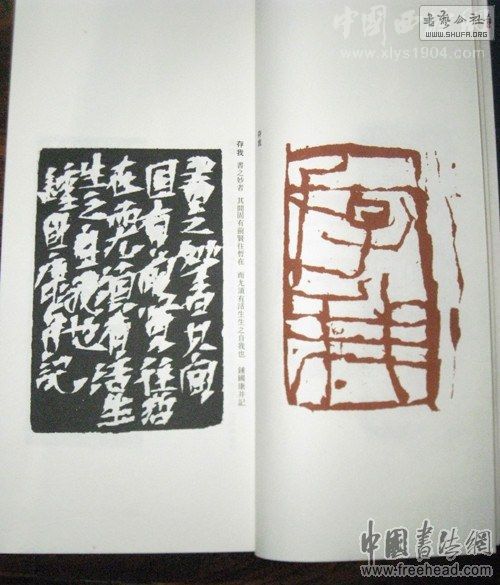 中國西
www.xlys1904.com
WWW.SHUFA.ORG
存我
存我 書之妙者 其間固有前賢往哲在 而尤須有活生生之自我也 鍾國康并記
書之妙者其間
固有前賢往哲
在而尤須有活生
生之自我也
鍾國康并記
中國書法網
www.freehead.com